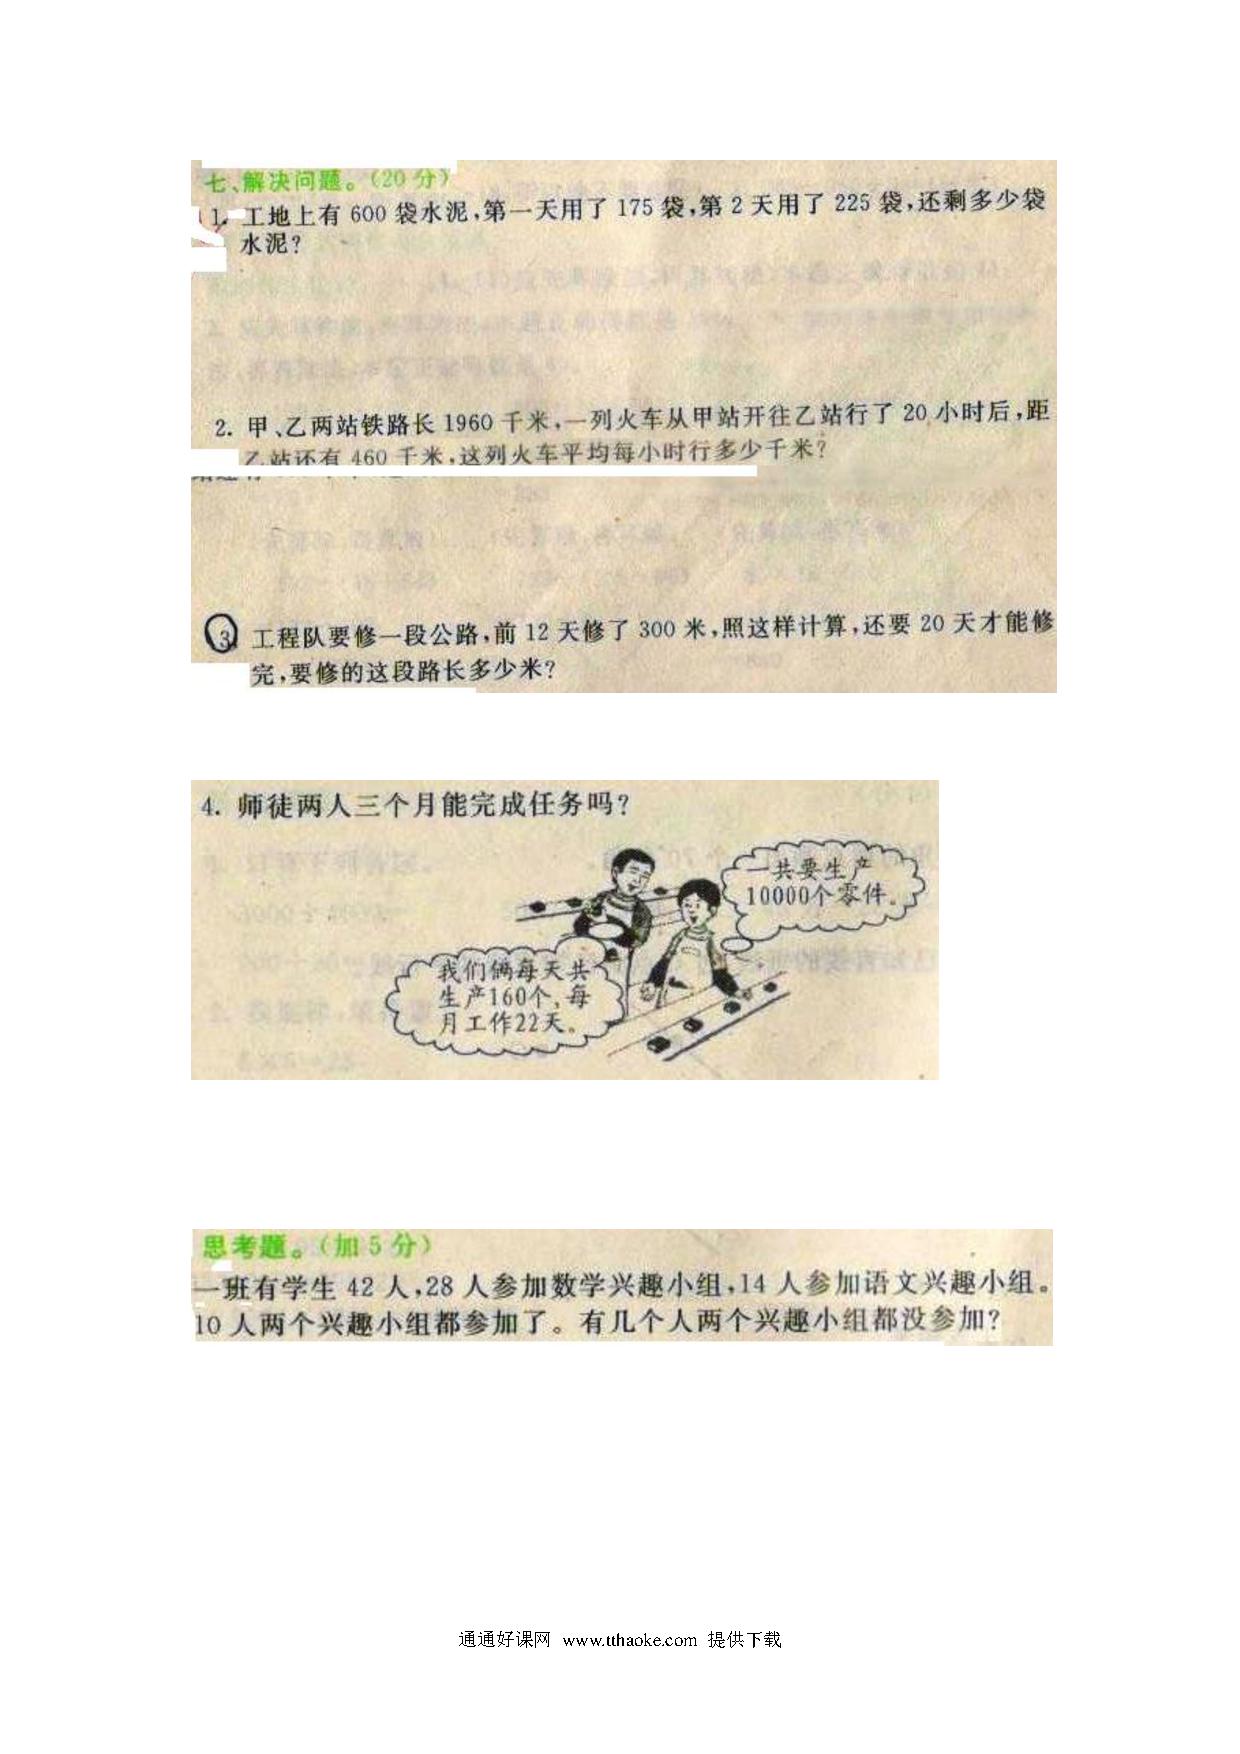 七、解决问题。(20分)
1. 工地上有 600 袋水泥,第一天用了 175 袋,第 2 天用了 225 袋,还剩多少袋
水泥?
2. 甲、乙两站铁路长 1960 千米,一列火车从甲站开往乙站行了 20 小时后,距
乙站还有 460 千米,这列火车平均每小时行多少千米?
3. 工程队要修一段公路,前 12 天修了 300 米,照这样计算,还要 20 天才能修
完,要修的这段路长多少米?
4. 师徒两人三个月能完成任务吗?
一共要生产
10000个零件。
我们俩每天共
生产160个,每
月工作22天。
思考题。(加 5 分)
一班有学生 42 人,28 人参加数学兴趣小组,14 人参加语文兴趣小组。
10 人两个兴趣小组都参加了。有几个人两个兴趣小组都没参加?
通通好课网 www.tthaoke.com 提供下载